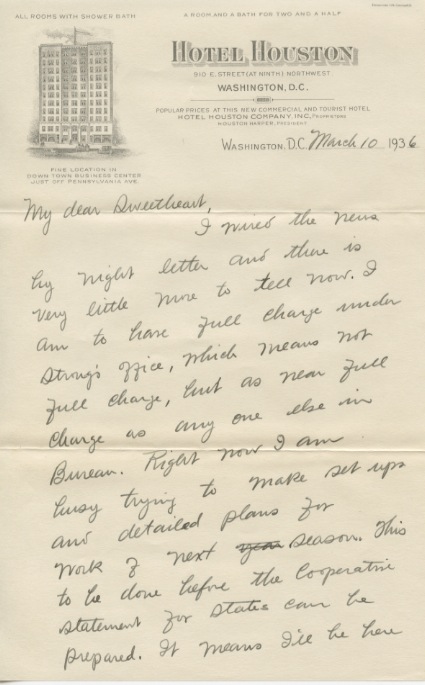 ALL ROOMS WITH SHOWER BATH
A ROOM AND A BATH FOR TWO AND A HALF
HOTEL HOUSTON
910 E. STREET (AT NINTH) NORTHWEST
WASHINGTON, D.C.
POPULAR PRICES AT THIS NEW COMMERCIAL AND TOURIST HOTEL
HOTEL HOUSTON COMPANY, INC, PROPRIETORS
HOUSTON HARPER, PRESIDENT
FINE LOCATION IN
DOWN TOWN BUSINESS CENTER
JUST OFF PENNSYLVANIA AVE.
WASHINGTON, D.C. March 10 1936
My dear Sweetheart,
I wired the news
by night letter and there is
very little more to tell now. I
am to have full charge under
Strong's office, which means not
full charge, but as near full
charge as any one else in
Bureau. Right now I am
busy trying to make set ups
and detailed plans for
work of next year season. This
to be done before the Cooperative
statement for States can be
prepared. It means I'll be here